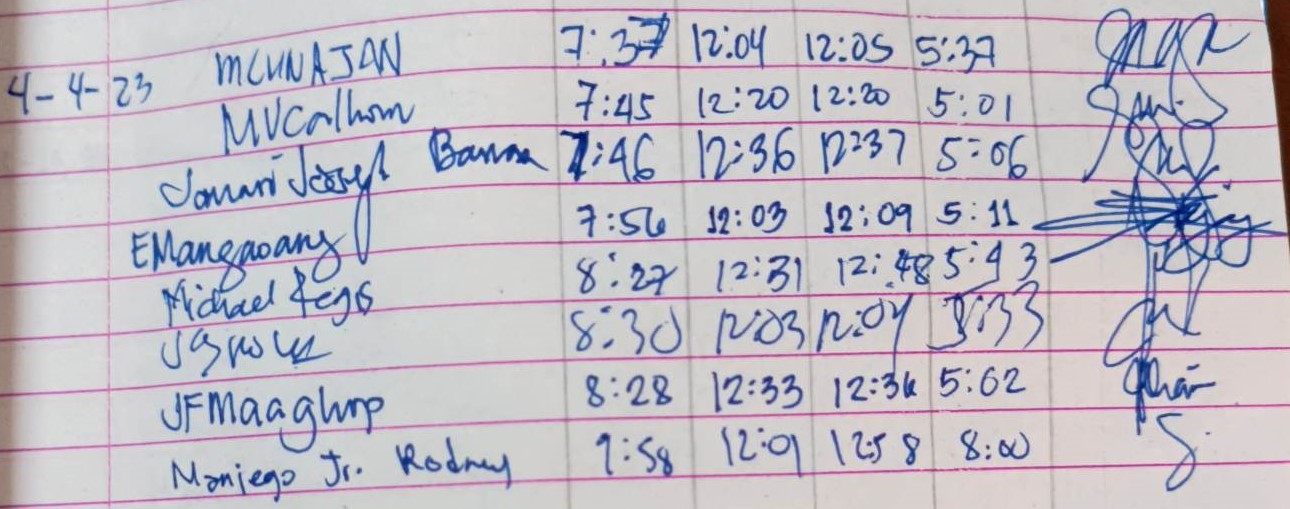 4-4-23 MCUNAJAN 7:37 12:04 12:05 5:37
MVCalhom 7:45 12:20 12:20 5:01
Jomari Joseph Banna 7:46 12:36 12:37 5:06
EMangaoang 7:56 12:03 12:09 5:11
Michael Regs 8:27 12:31 12:48 5:43
8:30 12:03 12:04 5:33
JFMaaghop 8:28 12:33 12:36 5:02
Moniego Jr. Rodney 9:58 12:01 12:58 8:00